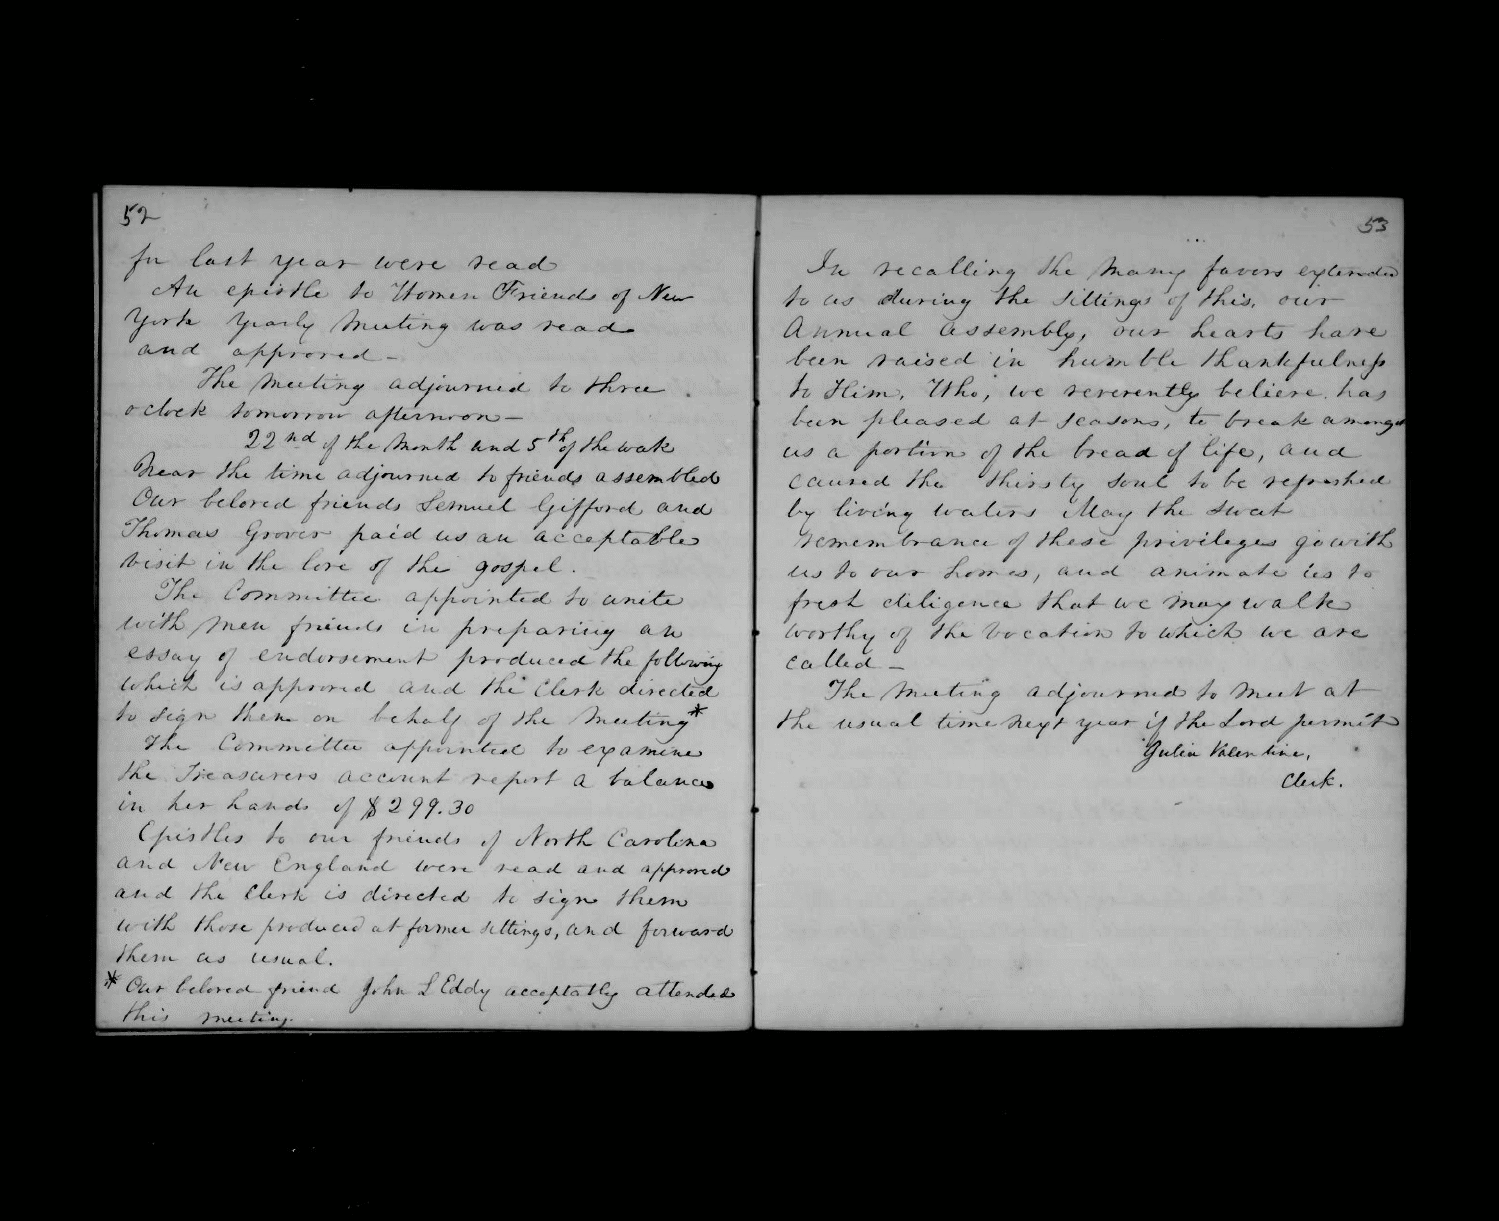 52
for last year were read
An epistle to Women Friends of New
York Yearly Meeting was read
and approved –
The Meeting adjourned to three
oclock tomorrow afternoon –
22nd of the Month and 5th of the week
Near the time adjourned to friends assembled
Our beloved friends Lemuel Gifford and
Thomas Grover paid us an acceptable
visit in the love of the gospel.
The Committee appointed to unite
with men friends in preparing an
essay of endorsement produced the following
which is approved and the Clerk directed
to sign them on behalf of the Meeting*
The Committee appointed to examine
the Treasurers account report a balance
in her hands of $299.30
Epistles to our friends of North Carolina
and New England were read and approved
and the Clerk is directed to sign them
with those produced at former sittings, and forward
them as usual.
* Our beloved friend John L Eddy acceptably attended
this meeting.
53
In recalling the many favors extended
to us during the sittings of this, our
Annual assembly, our hearts have
been raised in humble thankfulness
to Him, Who, we reverently believe has
been pleased at seasons, to break amongst
us a portion of the bread of life, and
caused the thirsty soul to be refreshed
by living waters May the sweet
remembrance of these privileges go with
us to our homes, and animate us to
fresh diligence that we may walk
worthy of the vocation to which we are
called –
The Meeting adjourned to meet at
the usual time next year if the Lord permit
Julia Valentine,
Clerk.